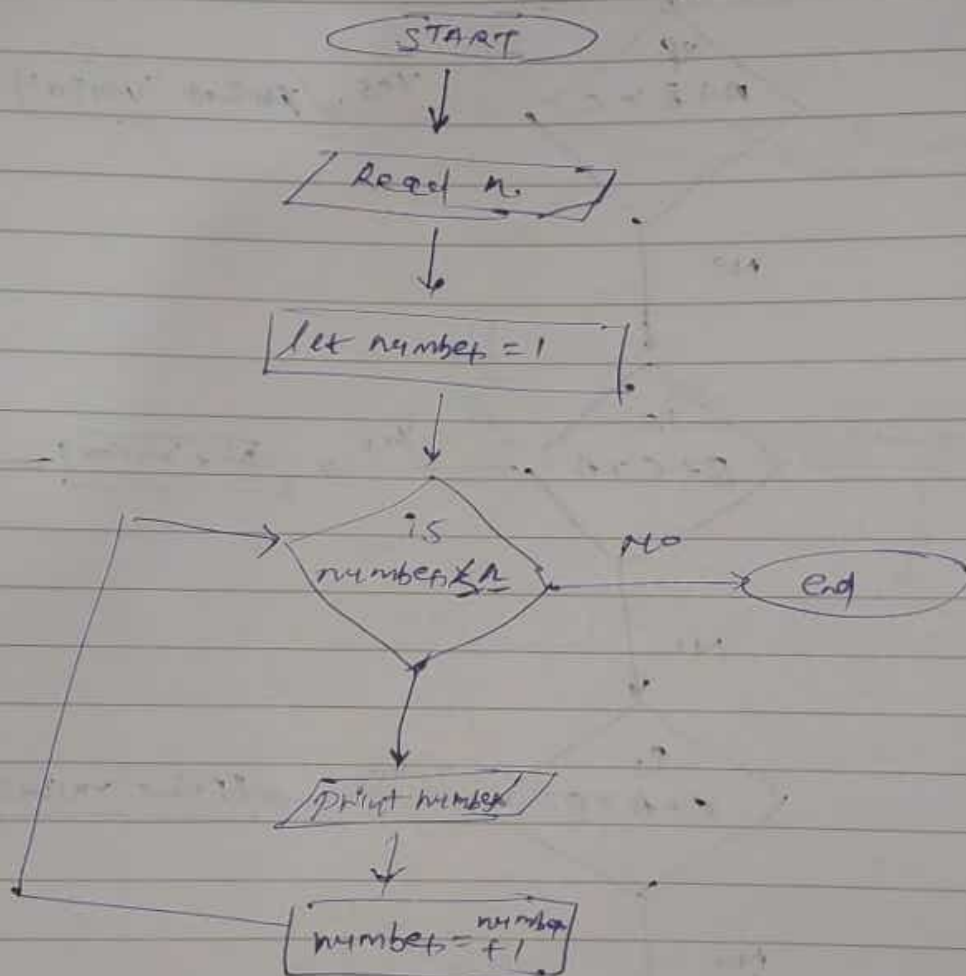 START
Read n.
let number = 1
is
number ≤ n
NO
end
print number
number = number
+1